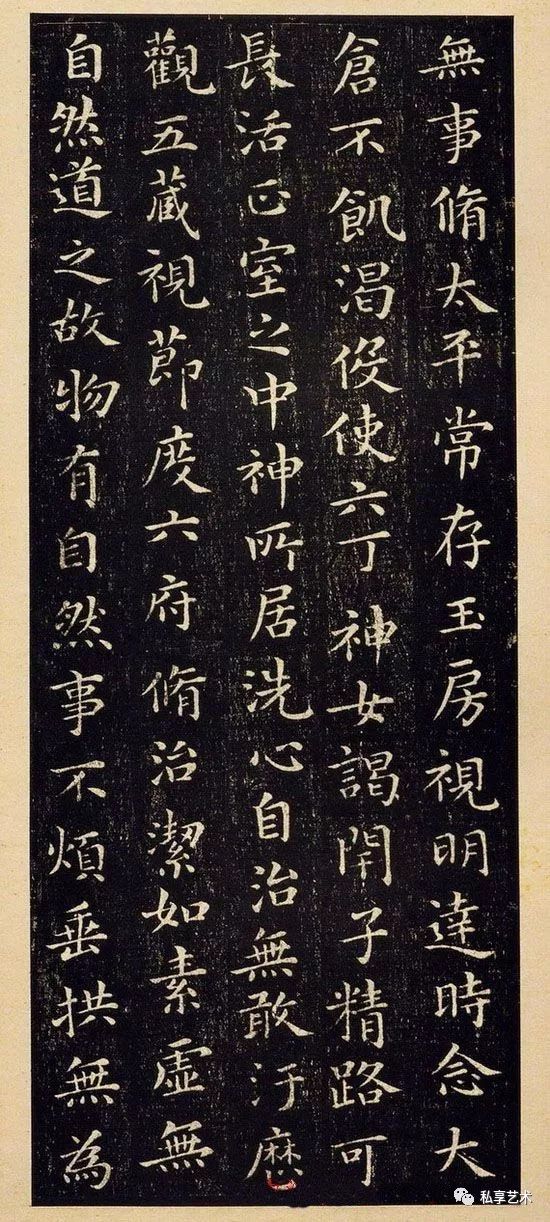 無事脩太平常存玉房視明達時念大
倉不飢渴役使六丁神女謁閇子精路可
長活正室之中神所居洗心自治無敢汙歷
觀五藏視節度六府脩治潔如素虛無
自然道之故物有自然事不煩垂拱無為
私享艺术